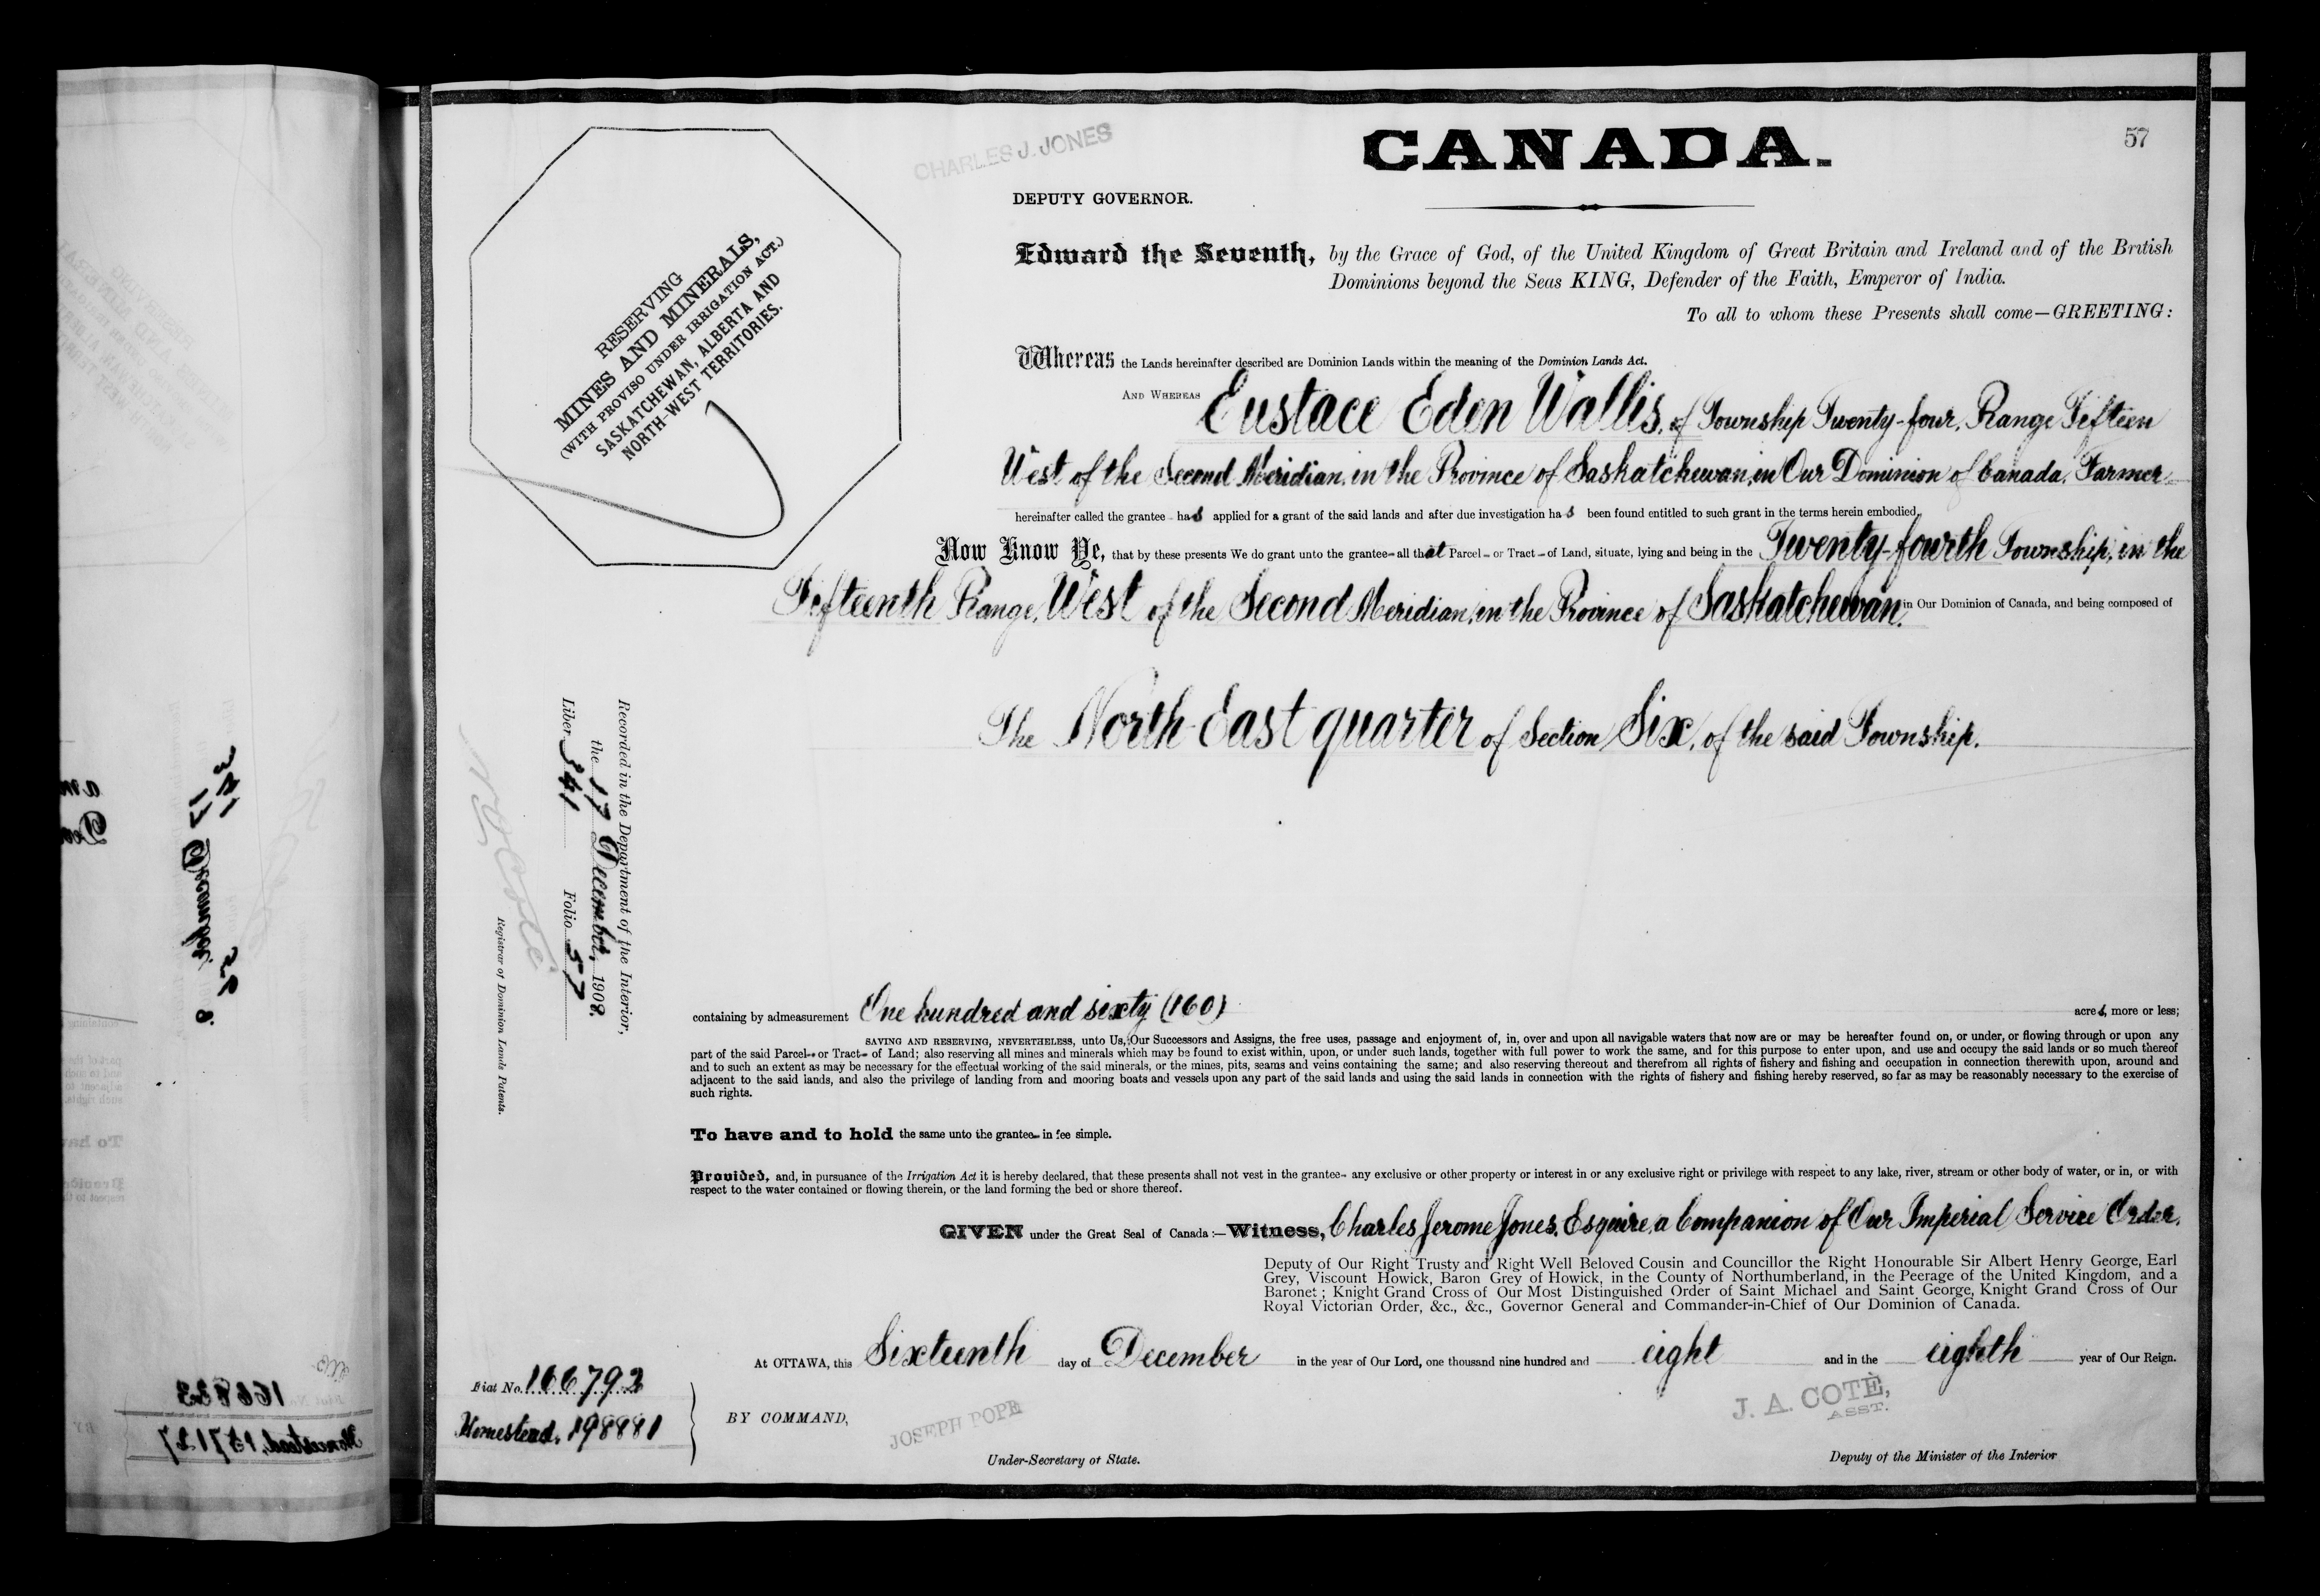 57
CHARLES J. JONES
CANADA.
DEPUTY GOVERNOR.
Edward the Seventh, by the Grace of God, of the United Kingdom of Great Britain and Ireland and of the British
Dominions beyond the Seas KING, Defender of the Faith, Emperor of India.
To all to whom these Presents shall come—GREETING:
RESERVING
MINES AND MINERALS,
(WITH PROVISO UNDER IRRIGATION ACT.)
SASKATCHEWAN, ALBERTA AND
NORTH-WEST TERRITORIES.
Whereas the Lands hereinafter described are Dominion Lands within the meaning of the Dominion Lands Act.
AND WHEREAS Eustace Eden Wallis, of Township Twenty-four, Range Fifteen
West of the Second Meridian, in the Province of Saskatchewan, in Our Dominion of Canada, Farmer
hereinafter called the grantee - has applied for a grant of the said lands and after due investigation has been found entitled to such grant in the terms herein embodied.
Now Know Ye, that by these presents We do grant unto the grantee—all that Parcel - or Tract - of Land, situate, lying and being in the Twenty-fourth Township, in the
Fifteenth Range, West of the Second Meridian, in the Province of Saskatchewan, in Our Dominion of Canada, and being composed of
The North East quarter of Section Six, of the said Township.
Recorded in the Department of the Interior,
the 17 December, 1908.
Liber 341 Folio 57
N O Coté
Registrar of Dominion Lands Patents.
containing by admeasurement One hundred and sixty (160) acres, more or less;
SAVING AND RESERVING, NEVERTHELESS, unto Us, Our Successors and Assigns, the free uses, passage and enjoyment of, in, over and upon all navigable waters that now are or may be hereafter found on, or under, or flowing through or upon any
part of the said Parcel - or Tract - of Land; also reserving all mines and minerals which may be found to exist within, upon, or under such lands, together with full power to work the same, and for this purpose to enter upon, and use and occupy the said lands or so much thereof
and to such an extent as may be necessary for the effectual working of the said minerals, or the mines, pits, seams and veins containing the same; and also reserving thereout and therefrom all rights of fishery and fishing and occupation in connection therewith upon, around and
adjacent to the said lands, and also the privilege of landing from and mooring boats and vessels upon any part of the said lands and using the said lands in connection with the rights of fishery and fishing hereby reserved, so far as may be reasonably necessary to the exercise of
such rights.
To have and to hold the same unto the grantee - in fee simple.
Provided, and, in pursuance of the Irrigation Act it is hereby declared, that these presents shall not vest in the grantee - any exclusive or other property or interest in or any exclusive right or privilege with respect to any lake, river, stream or other body of water, or in, or with
respect to the water contained or flowing therein, or the land forming the bed or shore thereof.
GIVEN under the Great Seal of Canada:—Witness, Charles Jerome Jones, Esquire, a Companion of Our Imperial Service Order,
Deputy of Our Right Trusty and Right Well Beloved Cousin and Councillor the Right Honourable Sir Albert Henry George, Earl
Grey, Viscount Howick, Baron Grey of Howick, in the County of Northumberland, in the Peerage of the United Kingdom, and a
Baronet; Knight Grand Cross of Our Most Distinguished Order of Saint Michael and Saint George, Knight Grand Cross of Our
Royal Victorian Order, &c., &c., Governor General and Commander-in-Chief of Our Dominion of Canada.
At OTTAWA, this Sixteenth day of December in the year of Our Lord, one thousand nine hundred and eight and in the eighth year of Our Reign.
Fiat No. 166792
Homestead, 198881
BY COMMAND,
JOSEPH POPE
Under-Secretary of State.
J. A. COTÉ,
ASST.
Deputy of the Minister of the Interior